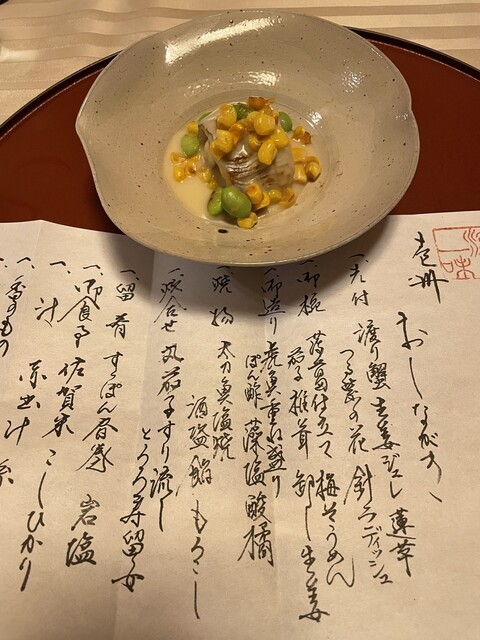 おしながき
一、先付 渡り蟹 生姜ジュレ 蓮草
つる菜の花 針ラディッシュ
一、御椀 薄葛仕立て 梅そうめん
茄子 椎茸 卸し生姜
一、御造り 虎魚重ね盛り
ぽん酢 藻塩 酸橘
一、焼物 太刀魚塩焼
酒盗餡 もろこし
一、炊合せ 丸茄子すり流し
とろろ寿留女
一、留肴 すっぽん春巻 岩塩
一、御食事 佐賀米 こしひかり
一、汁 赤出汁
一、香のもの